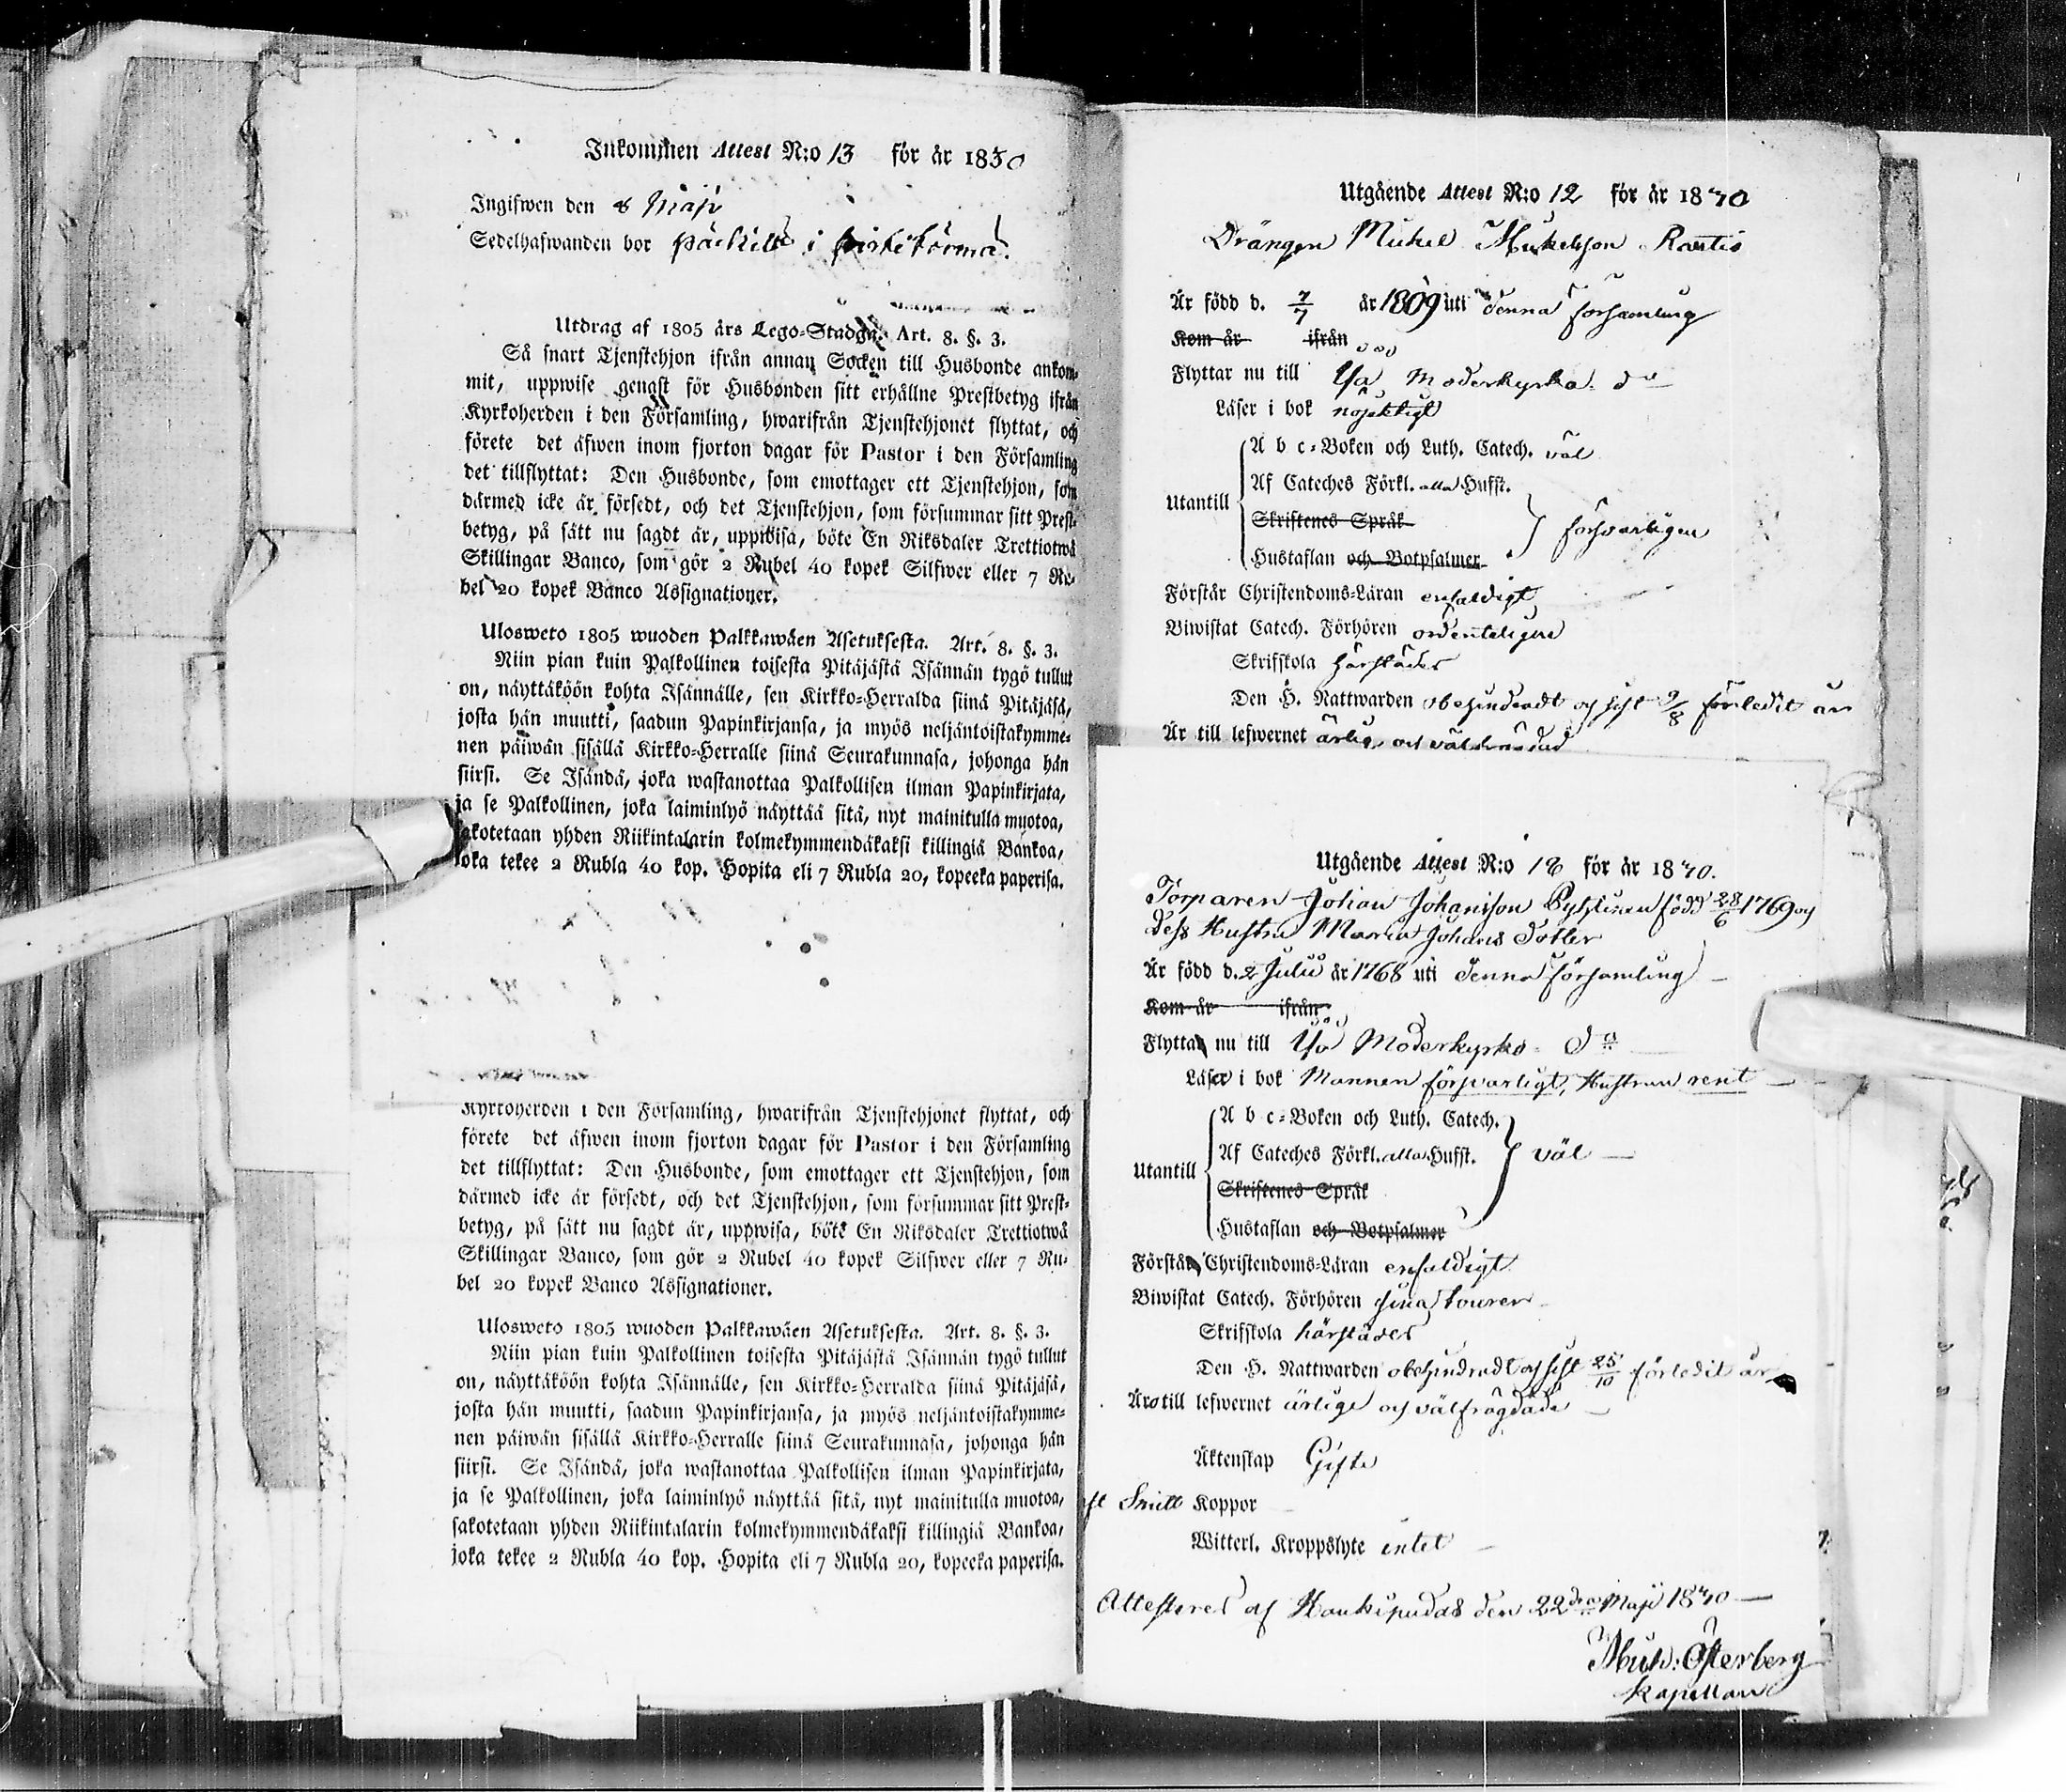 Inkommen Attest N:o 13 för år 1830
Ingifwen den 8 Maji
Sedelhafwanden bor i
Utdrag af 1805 års Lego-Stadga. Art. 8. §. 3.
Så snart Tjenstehjon ifrån annan Socken till Husbonde ankom-
mit, uppwise genast för Husbonden sitt erhållne Prestbetyg ifrån
Kyrkoherden i den Församling, hwarifrån Tjenstehjonet flyttat, och
förete det äfwen inom fjorton dagar för Pastor i den Församling
det tillflyttat: Den Husbonde, som emottager ett Tjenstehjon, som
därmed icke är försedt, och det Tjenstehjon, som försummar sitt Prest-
betyg, på sätt nu sagdt är, uppwisa, böte En Riksdaler Trettiotwå
Skillingar Banco, som gör 2 Rubel 40 kopek Silfwer eller 7 Ru-
bel 20 kopek Banco Assignationer.
Ulosweto 1805 wuoden Palkkawäen Asetuksesta. Art. 8. §. 3.
Niin pian kuin Palkollinen toisesta Pitäjästä Isännän tygö tullut
on, näyttäköön kohta Isännälle, sen Kirkko-Herralda siinä Pitäjäsä,
josta hän muutti, saadun Papinkirjansa, ja myös neljäntoistakymme-
nen päiwän sisällä Kirkko-Herralle siinä Seurakunnasa, johonga hän
siirsi. Se Isändä, joka wastanottaa Palkollisen ilman Papinkirjata,
ja se Palkollinen, joka laiminlyö näyttää sitä, nyt mainitulla muotoa,
sakotetaan yhden Riikintalarin kolmekymmendäkaksi killingiä Bankoa,
joka tekee 2 Rubla 40 kop. Hopita eli 7 Rubla 20, kopeeka paperisa.
Kyrkoherden i den Församling, hwarifrån Tjenstehjonet flyttat, och
förete det äfwen inom fjorton dagar för Pastor i den Församling
det tillflyttat: Den Husbonde, som emottager ett Tjenstehjon, som
därmed icke är försedt, och det Tjenstehjon, som försummar sitt Prest-
betyg, på sätt nu sagdt är, uppwisa, böte En Riksdaler Trettiotwå
Skillingar Banco, som gör 2 Rubel 40 kopek Silfwer eller 7 Ru-
bel 20 kopek Banco Assignationer.
Ulosweto 1805 wuoden Palkkawäen Asetuksesta. Art. 8. §. 3.
Niin pian kuin Palkollinen toisesta Pitäjästä Isännän tygö tullut
on, näyttäköön kohta Isännälle, sen Kirkko-Herralda siinä Pitäjäsä,
josta hän muutti, saadun Papinkirjansa, ja myös neljäntoistakymme-
nen päiwän sisällä Kirkko-Herralle siinä Seurakunnasa, johonga hän
siirsi. Se Isändä, joka wastanottaa Palkollisen ilman Papinkirjata,
ja se Palkollinen, joka laiminlyö näyttää sitä, nyt mainitulla muotoa,
sakotetaan yhden Riikintalarin kolmekymmendäkaksi killingiä Bankoa,
joka tekee 2 Rubla 40 kop. Hopita eli 7 Rubla 20, kopeeka paperisa.
Utgående Attest N:o 12 för år 1840
Drängen Michel Michelsson
Är född d. 7/7 år 1809 uti denna församling
Kom år ifrån
Flyttar nu till Moderkyrko
Läser i bok nöjaktigt
A b c-Boken och Luth. Catech. väl
Af Cateches Förkl. alla Hufst.
Utantill
Skriftenes Språk
försvarligen
Hustaflan och Botpsalmer
Förstår Christendoms-Läran enfaldigt
Biwistat Catech. Förhören ordenteligen
Skrifskola härstädes
Den H. Nattwarden obehindradt och sist förledit år
Är till lefwernet ärlig och välfrägdad
Utgående Attest N:o 18 för år 1840.
Torparen Johan Johansson född 28/6 1769 och
dess Hustru Maria Johans Dotter
Är född d. 2 Julii år 1768 uti denna församling
Kom år ifrån
Flytta nu till Moderkyrko
Läser i bok Mannen försvarligt, Hustrun rent
A b c-Boken och Luth. Catech.
Af Cateches Förkl. alla Hufst.
väl
Utantill
Skriftenes Språk
Hustaflan och Botpsalmer
Förstå Christendoms-Läran enfaldigt
Biwistat Catech. Förhören sina tourer
Skrifskola härstädes
Den H. Nattwarden obehindradt och sist 25/10 förledit år
Äro till lefwernet ärlige och välfrägdade
Äktenskap Gifte
Koppor
Witterl. Kroppslyte intet
Attesteres af Haukipudas den 22 Maji 1840
Mich: Österberg
Kapellan